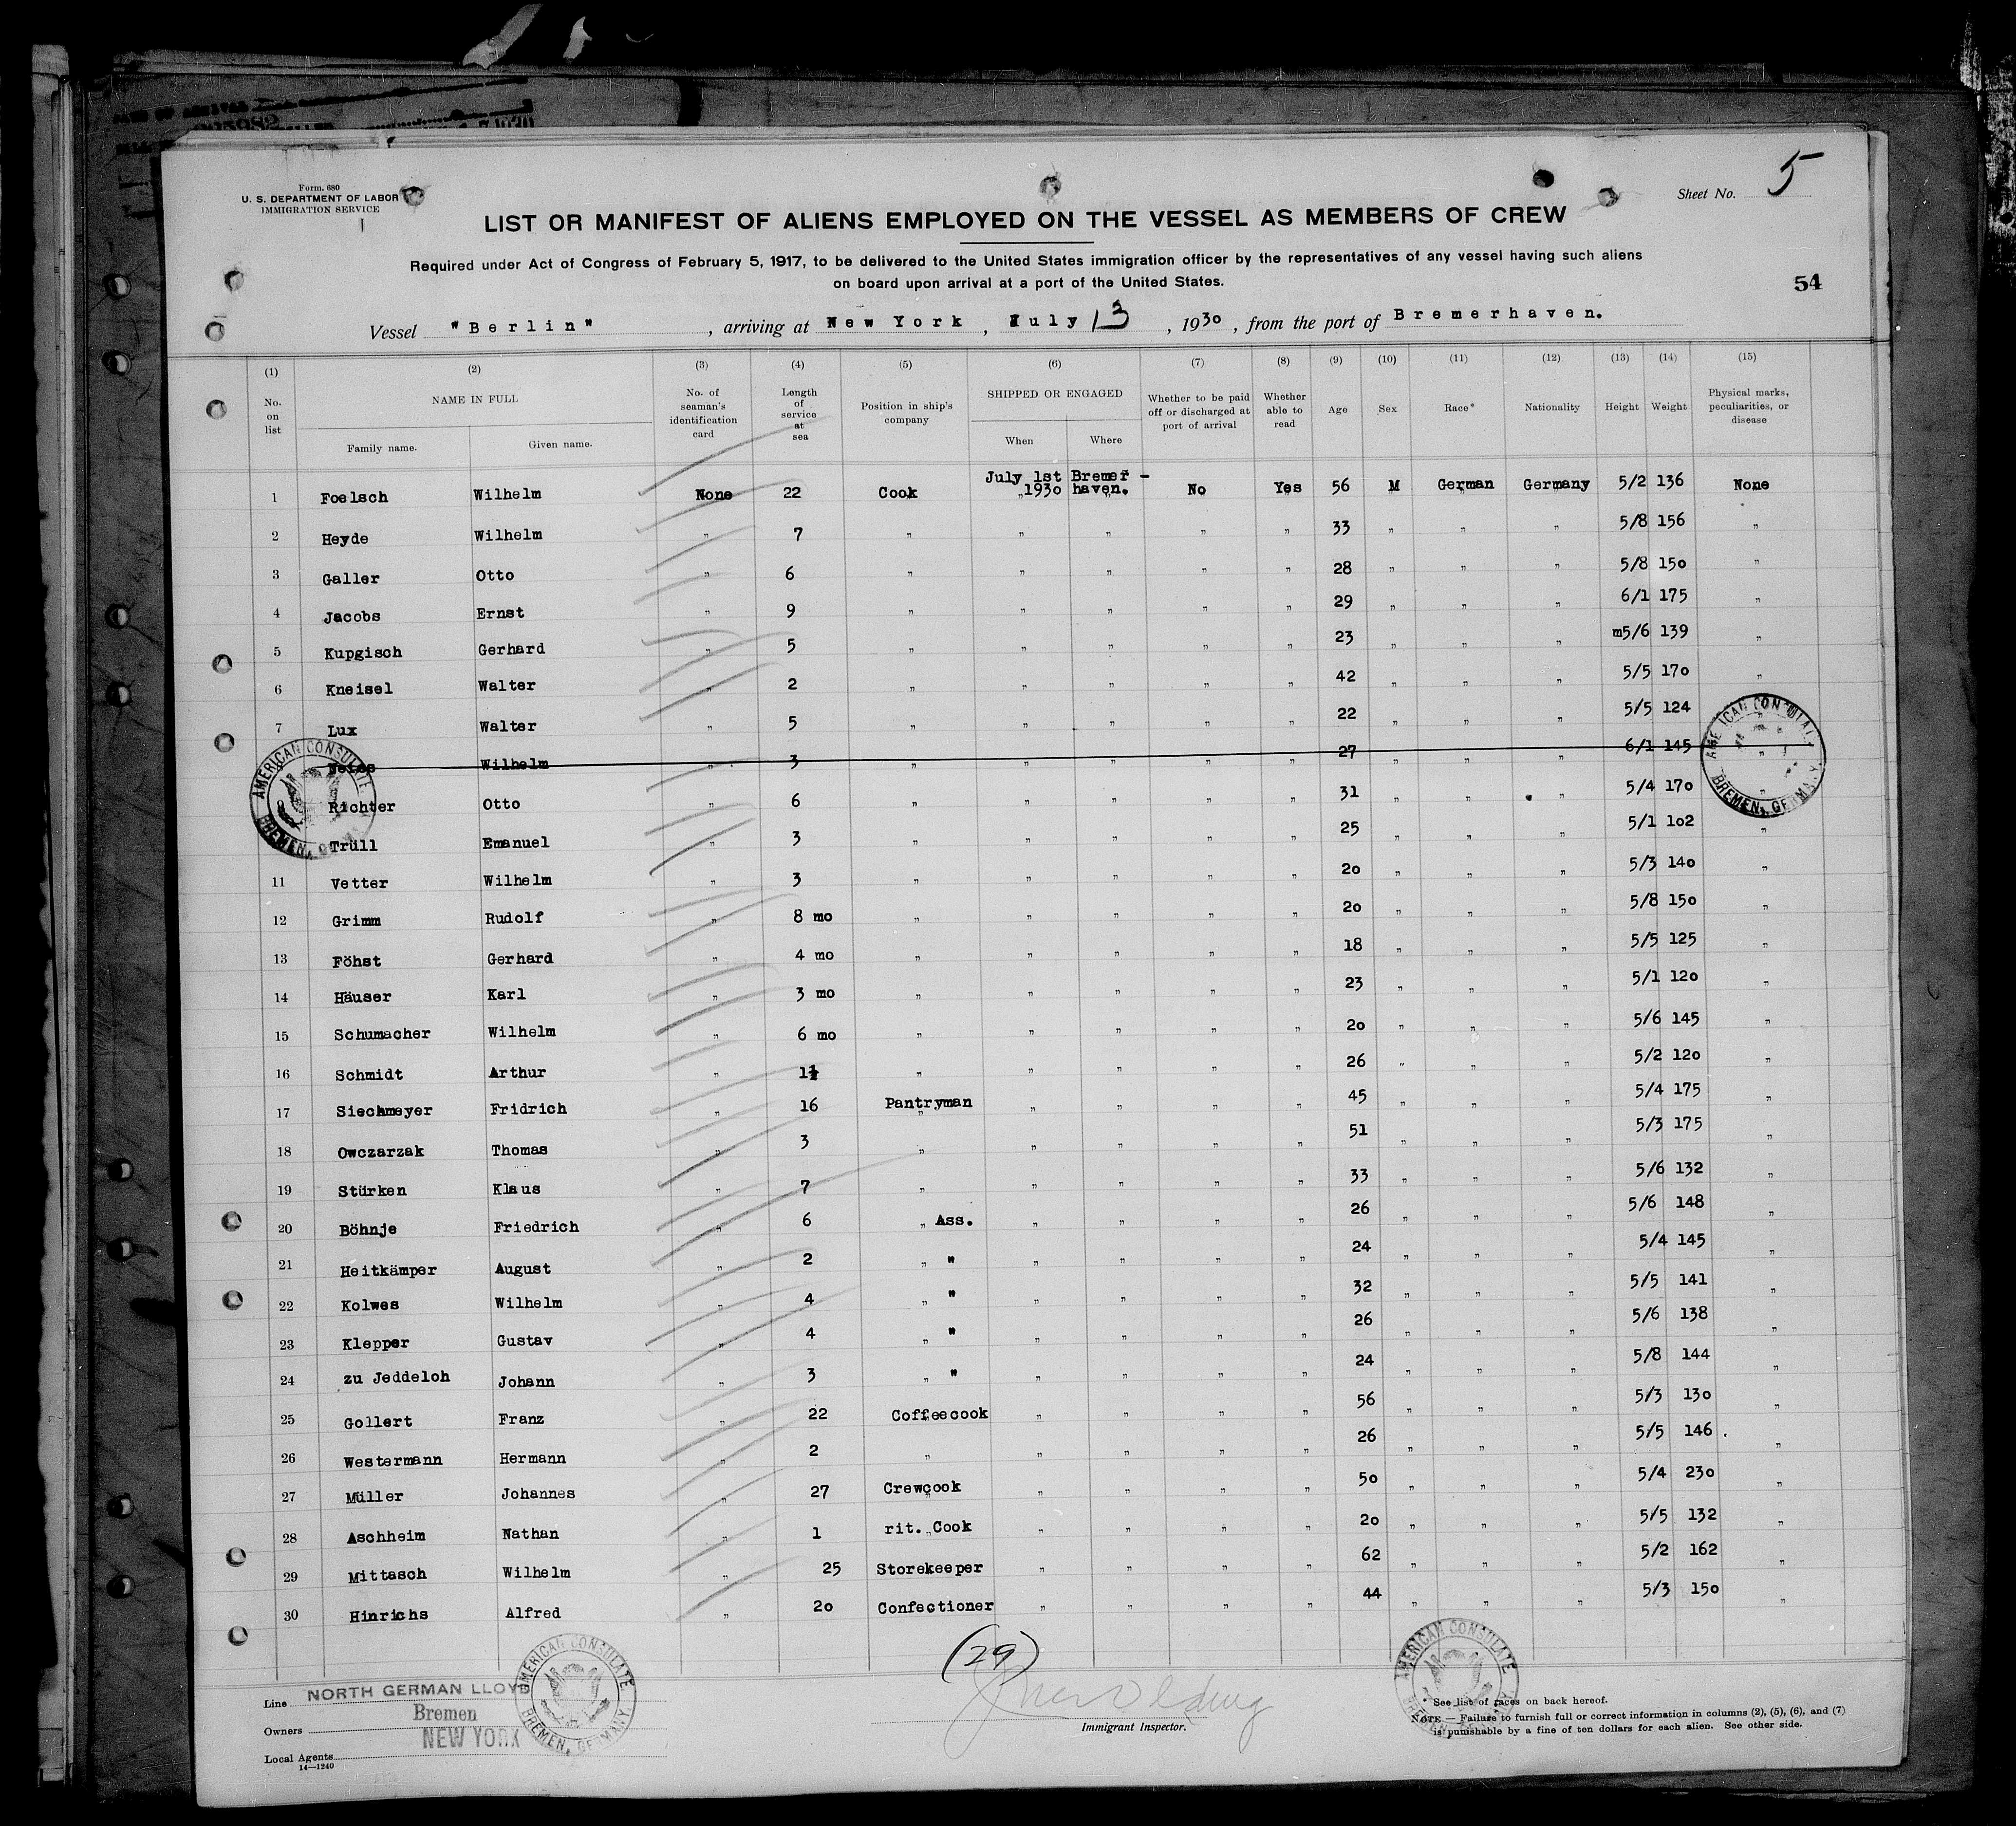 Form. 680
U. S. DEPARTMENT OF LABOR
IMMIGRATION SERVICE
Sheet No. 5
LIST OR MANIFEST OF ALIENS EMPLOYED ON THE VESSEL AS MEMBERS OF CREW
Required under Act of Congress of February 5, 1917, to be delivered to the United States immigration officer by the representatives of any vessel having such aliens
on board upon arrival at a port of the United States.
54
Vessel "Berlin", arriving at New York, July 13, 1930, from the port of Bremerhaven.
(1) (2) (3) (4) (5) (6) (7) (8) (9) (10) (11) (12) (13) (14) (15)
No. on list NAME IN FULL Family name. Given name. No. of seaman's identification card Length of service at sea Position in ship's company SHIPPED OR ENGAGED When Where Whether to be paid off or discharged at port of arrival Whether able to read Age Sex Race* Nationality Height Weight Physical marks, peculiarities, or disease
1 Foelsch Wilhelm None 22 Cook July 1st 1930 Bremerhaven. No Yes 56 M German Germany 5/2 136 None
2 Heyde Wilhelm " 7 " " " " " 33 " " " 5/8 156 "
3 Galler Otto " 6 " " " " " 28 " " " 5/8 150 "
4 Jacobs Ernst " 9 " " " " " 29 " " " 6/1 175 "
5 Kupgisch Gerhard " 5 " " " " " 23 " " " m5/6 139 "
6 Kneisel Walter " 2 " " " " " 42 " " " 5/5 170 "
7 Lux Walter " 5 " " " " " 22 " " " 5/5 124 "
Wilhelm " 3 " " " " " 27 " " " 6/1 145 "
Richter Otto " 6 " " " " " 31 " " " 5/4 170 "
Trüll Emanuel " 3 " " " " " 25 " " " 5/1 102 "
11 Vetter Wilhelm " 3 " " " " " 20 " " " 5/3 140 "
12 Grimm Rudolf " 8 mo " " " " " 20 " " " 5/8 150 "
13 Föhst Gerhard " 4 mo " " " " " 18 " " " 5/5 125 "
14 Häuser Karl " 3 mo " " " " " 23 " " " 5/1 120 "
15 Schumacher Wilhelm " 6 mo " " " " " 20 " " " 5/6 145 "
16 Schmidt Arthur " " " " " " 26 " " " 5/2 120 "
17 Siechmeyer Fridrich " 16 Pantryman " " " " 45 " " " 5/4 175 "
18 Owczarzak Thomas " 3 " " " " " 51 " " " 5/3 175 "
19 Stürken Klaus " 7 " " " " " 33 " " " 5/6 132 "
20 Böhnje Friedrich " 6 " Ass. " " " " 26 " " " 5/6 148 "
21 Heitkämper August " 2 " " " " " " 24 " " " 5/4 145 "
22 Kolwes Wilhelm " 4 " " " " " " 32 " " " 5/5 141 "
23 Klepper Gustav " 4 " " " " " " 26 " " " 5/6 138 "
24 zu Jeddeloh Johann " 3 " " " " " " 24 " " " 5/8 144 "
25 Gollert Franz " 22 Coffeecook " " " " 56 " " " 5/3 130 "
26 Westermann Hermann " 2 " " " " " 26 " " " 5/5 146 "
27 Müller Johannes " 27 Crewcook " " " " 50 " " " 5/4 230 "
28 Aschheim Nathan " 1 rit. Cook " " " " 20 " " " 5/5 132 "
29 Mittasch Wilhelm " 25 Storekeeper " " " " 62 " " " 5/2 162 "
30 Hinrichs Alfred " 20 Confectioner " " " " 44 " " " 5/3 150 "
AMERICAN CONSULATE
BREMEN, GERMANY
AMERICAN CONSULATE
BREMEN, GERMANY
(29)
Line NORTH GERMAN LLOYD
Bremen
Owners
NEW YORK
Local Agents
14—1240
AMERICAN CONSULATE
BREMEN, GERMANY
Immigrant Inspector.
AMERICAN CONSULATE
BREMEN, GERMANY
* See list of races on back hereof.
NOTE — Failure to furnish full or correct information in columns (2), (5), (6), and (7)
is punishable by a fine of ten dollars for each alien. See other side.